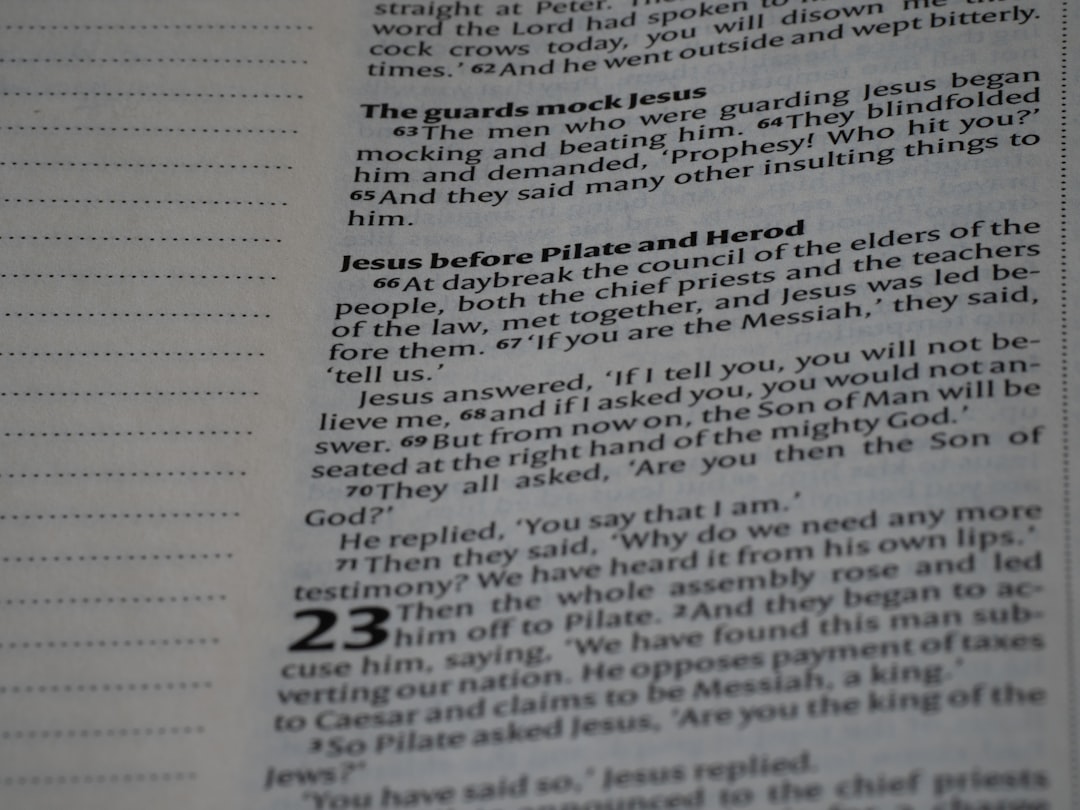 straight at Peter.
word the Lord had spoken to
cock crows today, you will disown me
times.’ 62 And he went outside and wept bitterly.
The guards mock Jesus
63 The men who were guarding Jesus began
mocking and beating him. 64 They blindfolded
him and demanded, ‘Prophesy! Who hit you?’
65 And they said many other insulting things to
him.
Jesus before Pilate and Herod
66 At daybreak the council of the elders of the
people, both the chief priests and the teachers
of the law, met together, and Jesus was led be-
fore them. 67 ‘If you are the Messiah,’ they said,
‘tell us.’
Jesus answered, ‘If I tell you, you will not be-
lieve me, 68 and if I asked you, you would not an-
swer. 69 But from now on, the Son of Man will be
seated at the right hand of the mighty God.’
70 They all asked, ‘Are you then the Son of
God?’
He replied, ‘You say that I am.’
71 Then they said, ‘Why do we need any more
testimony? We have heard it from his own lips.’
23 Then the whole assembly rose and led
him off to Pilate. 2 And they began to ac-
cuse him, saying, ‘We have found this man sub-
verting our nation. He opposes payment of taxes
to Caesar and claims to be Messiah, a king.’
3 So Pilate asked Jesus, ‘Are you the king of the
Jews?’
‘You have said so,’ Jesus replied.
announced to the chief priests